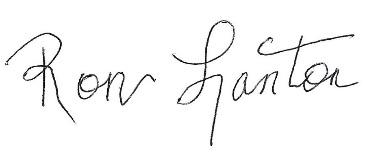 Ron Lanton